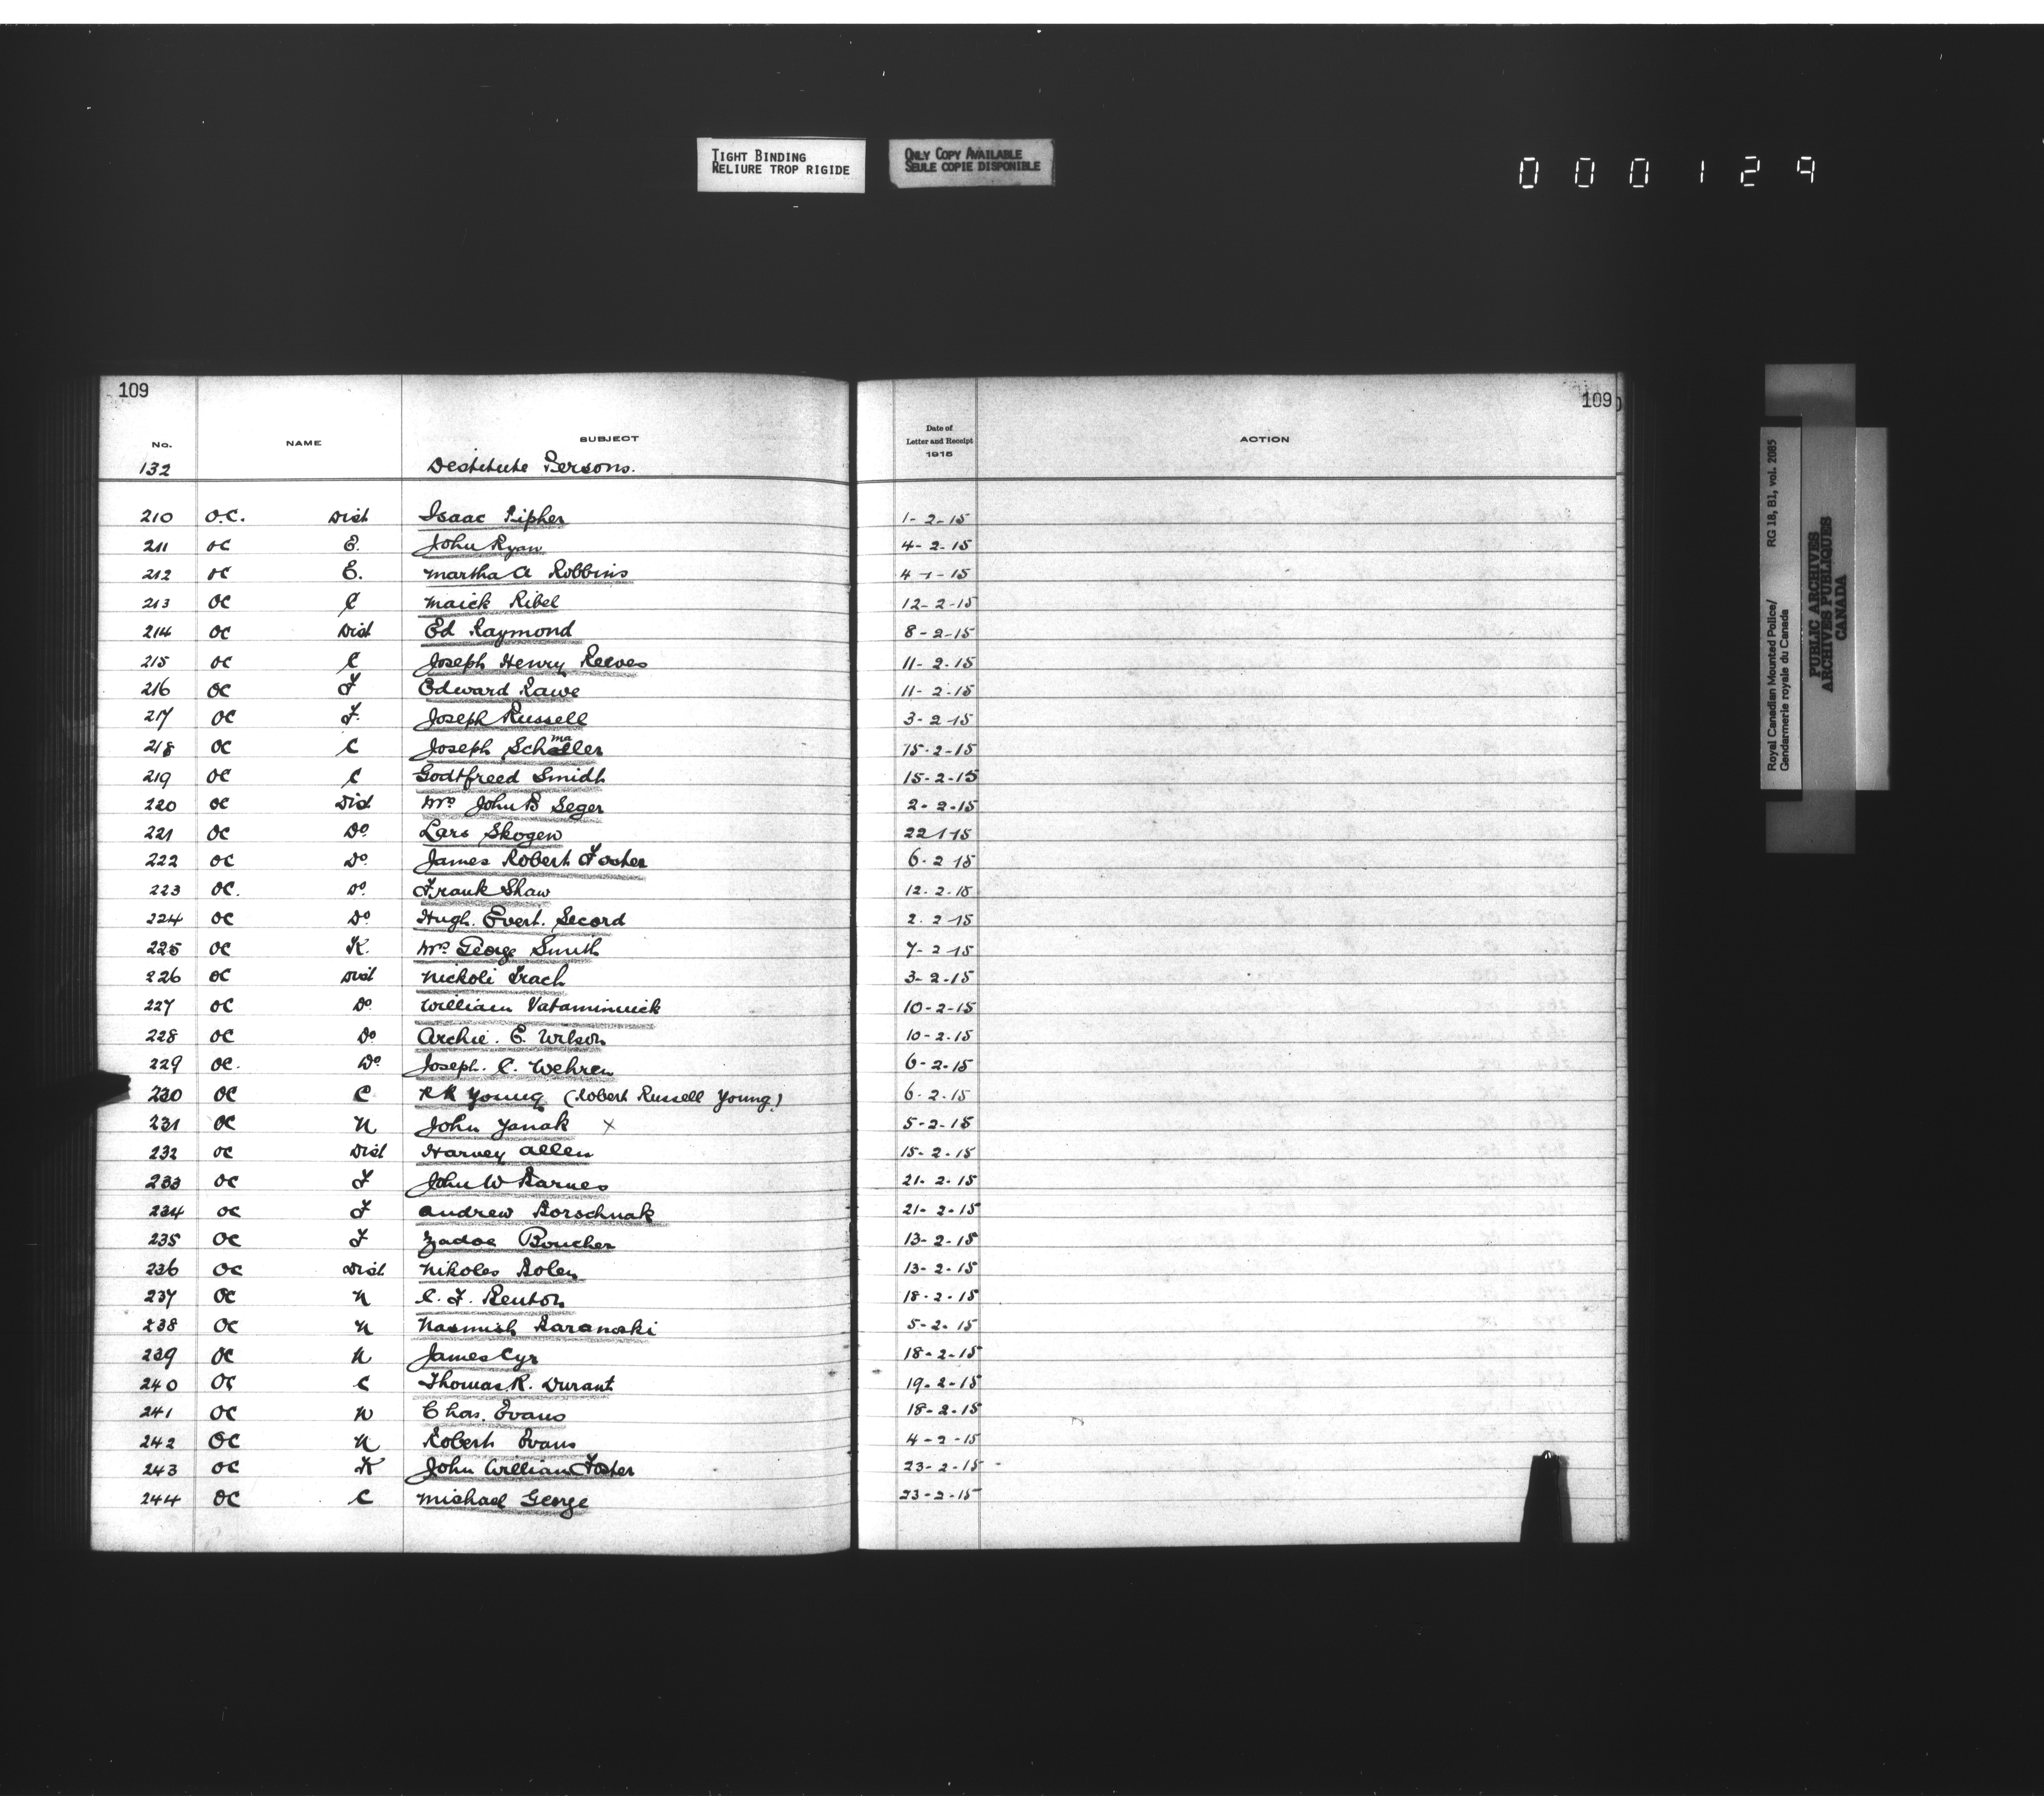 TIGHT BINDING
RELIURE TROP RIGIDE
ONLY COPY AVAILABLE
SEULE COPIE DISPONIBLE
000129
109 109
No. NAME SUBJECT Date of Letter and Receipt 1915 ACTION
132 Destitute Persons.
210 O.C. Dist Isaac Pipher 1-2-15
211 OC E. John Ryan 4-2-15
212 OC E. Martha A Robbins 4-1-15
213 OC C Maick Ribel 12-2-15
214 OC Dist Ed Raymond 8-2-15
215 OC C Joseph Henry Reeves 11-2-15
216 OC F Edward Rawe 11-2-15
217 OC F. Joseph Russell 3-2-15
218 OC C Joseph 15-2-15
219 OC C Godtfreed Smidt 15-2-15
220 OC Dist Mrs John B Seger 2-2-15
221 OC Do Lars Skogen 22-1-15
222 OC Do James Robert Foster 6-2-15
223 OC. Do Frank Shaw 12-2-15
224 OC Do Hugh. Evert. Secord 2-2-15
225 OC K. Mrs George Smith 7-2-15
226 OC Dist Nickoli Trach 3-2-15
227 OC Do William Vataminuick 10-2-15
228 OC Do Archie. E. Wilson 10-2-15
229 OC. Do Joseph. C. Wehren 6-2-15
230 OC C RR Young (Robert Russell Young) 6-2-15
231 OC N John Yanak X 5-2-15
232 OC Dist Harvey Allen 15-2-15
233 OC F John W Barnes 21-2-15
234 OC F Andrew Borschnak 21-2-15
235 OC F Zadoc Boucher 13-2-15
236 OC Dist Nikoles Bolen 13-2-15
237 OC N C. F. Benton 18-2-15
238 OC N Nasmish Baranoski 5-2-15
239 OC N James Cyr 18-2-15
240 OC C Thomas R. Durant 19-2-15
241 OC N Chas. Evans 18-2-15
242 OC N Robert Evans 4-2-15
243 OC K John William Foster 23-2-15
244 OC C Michael George 23-2-15
Royal Canadian Mounted Police/ RG 18, B1, vol. 2085
Gendarmerie royale du Canada
PUBLIC ARCHIVES
ARCHIVES PUBLIQUES
CANADA